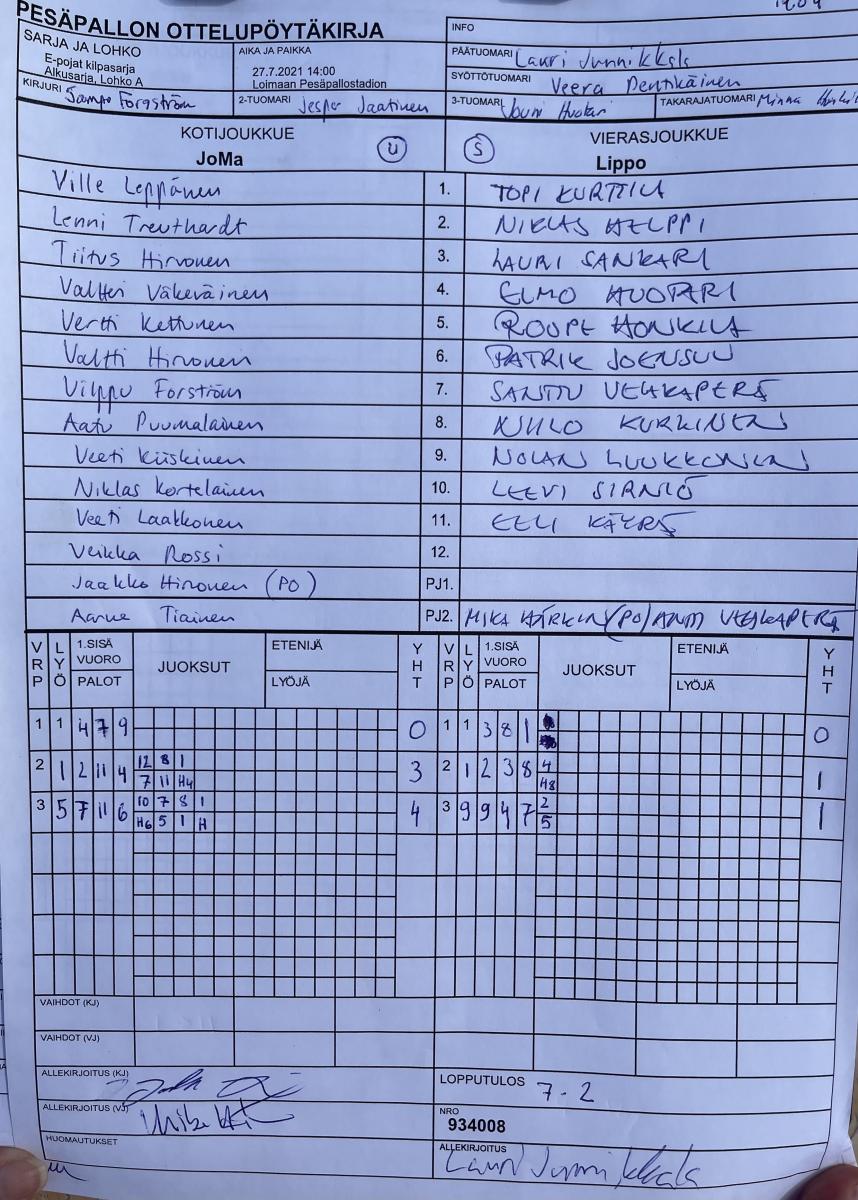 PESÄPALLON OTTELUPÖYTÄKIRJA
INFO
SARJA JA LOHKO
E-pojat kilpasarja
Alkusarja, Lohko A
AIKA JA PAIKKA
27.7.2021 14:00
Loimaan Pesäpallostadion
PÄÄTUOMARI Lauri Junnikkala
SYÖTTÖTUOMARI Veera Pentikäinen
KIRJURI Sampo Forsström
2-TUOMARI Jesper Jaatinen
3-TUOMARI Jouni Huotari
TAKARAJATUOMARI Minna
KOTIJOUKKUE
JoMa
U
S
VIERASJOUKKUE
Lippo
Ville Leppänen 1. TOPI KURTTILA
Lenni Treuthardt 2. NIKLAS HELPPI
Tiitus Hirvonen 3. LAURI SANKARI
Valtteri Väkeväinen 4. ELMO HUOTARI
Vertti Kettunen 5. ROOPE HONKILA
Valtti Hirvonen 6. PATRIK JOENSUU
Vilppu Forström 7. SANTTU VEHKAPERÄ
Aatu Puumalainen 8. NIILO KURKINEN
Veeti Kiiskinen 9. NOLAN LUUKKONEN
Niklas Kortelainen 10. LEEVI SIRNIÖ
Veeti Laakkonen 11. EELI KÄYRÄ
Veikka Rossi 12.
Jaakko Hirvonen (PO) PJ1.
Aarne Tiainen PJ2. MIKA HÄRKIN (PO) VEHKAPERÄ
VRP LYÖ 1.SISÄ VUORO PALOT JUOKSUT ETENIJÄ LYÖJÄ YHT VRP LYÖ 1.SISÄ VUORO PALOT JUOKSUT ETENIJÄ LYÖJÄ YHT
1 1 4 7 9 0 1 1 3 8 1 0
2 1 2 11 4 12 8 1 3 2 1 2 3 8 4 1
7 11 H4 H8
3 5 7 11 6 10 7 8 1 4 3 9 9 4 7 2 1
H6 5 1 H 5
VAIHDOT (KJ)
VAIHDOT (VJ)
ALLEKIRJOITUS (KJ)
LOPPUTULOS 7-2
ALLEKIRJOITUS (VJ)
NRO
934008
HUOMAUTUKSET
ALLEKIRJOITUS
Lauri Junnikkala